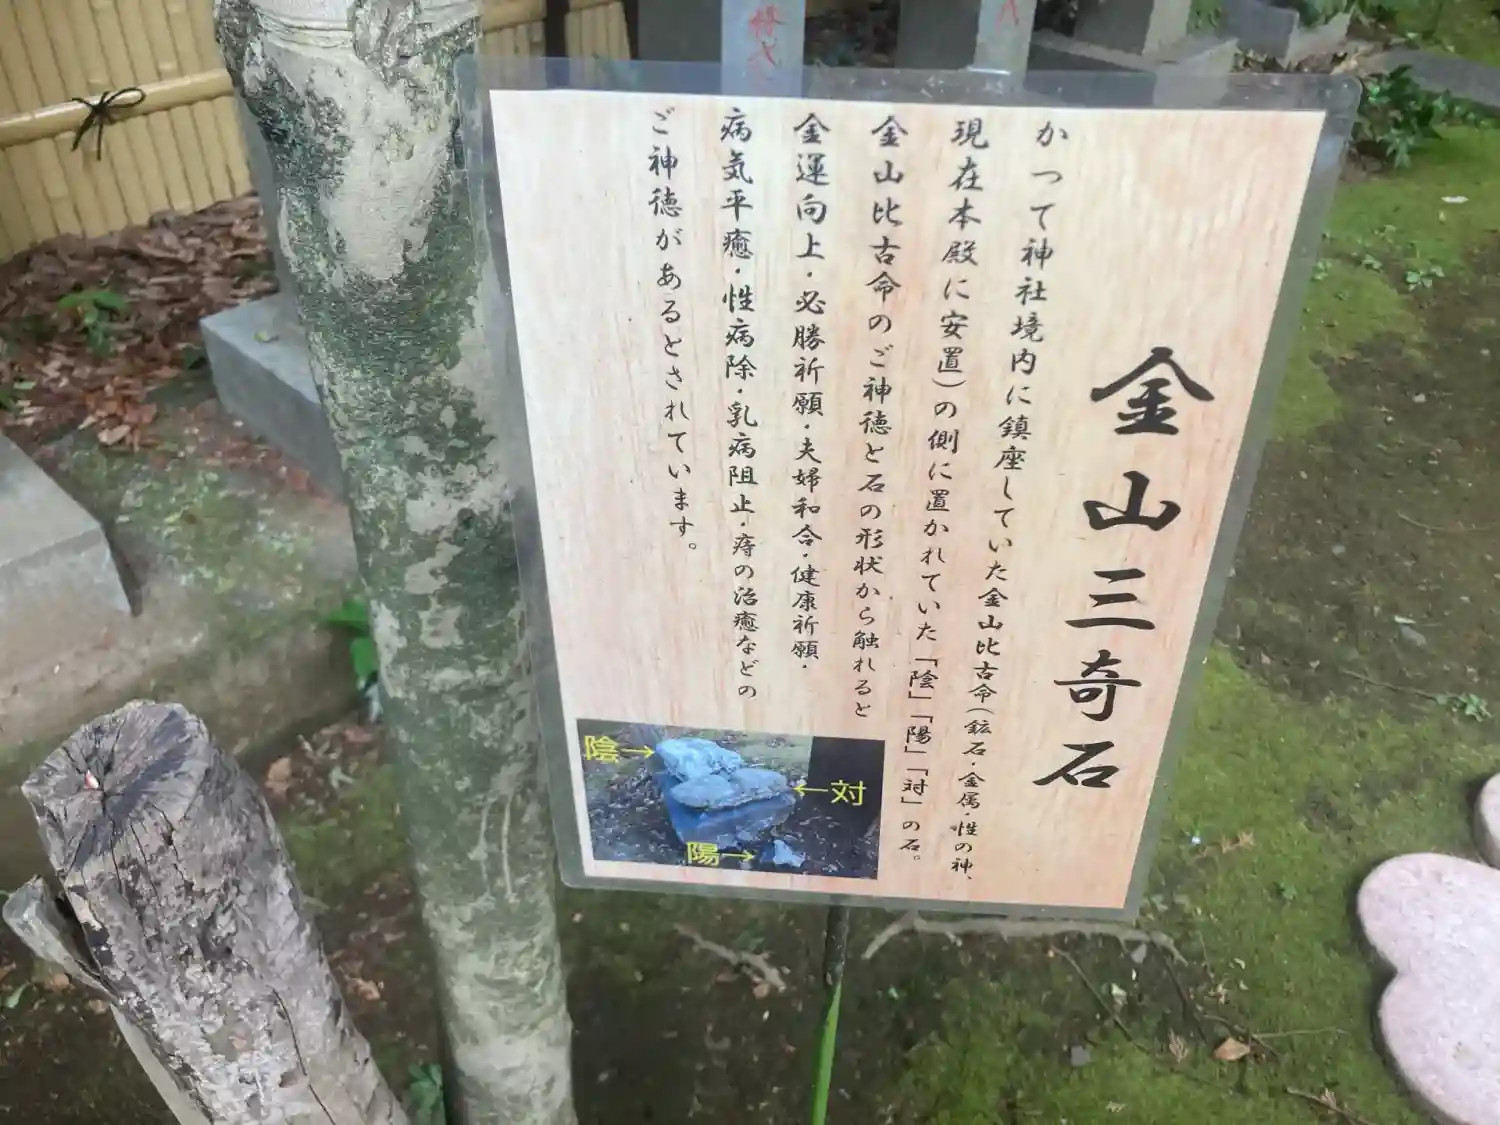 金山三奇石
かつて神社境内に鎮座していた金山比古命(鉱石・金属・性の神、
現在本殿に安置)の側に置かれていた「陰」「陽」「対」の石。
金山比古命のご神徳と石の形状から触れると
金運向上・必勝祈願・夫婦和合・健康祈願・
病気平癒・性病除・乳病阻止・痔の治癒などの
ご神徳があるとされています。
陰→
←対
陽→